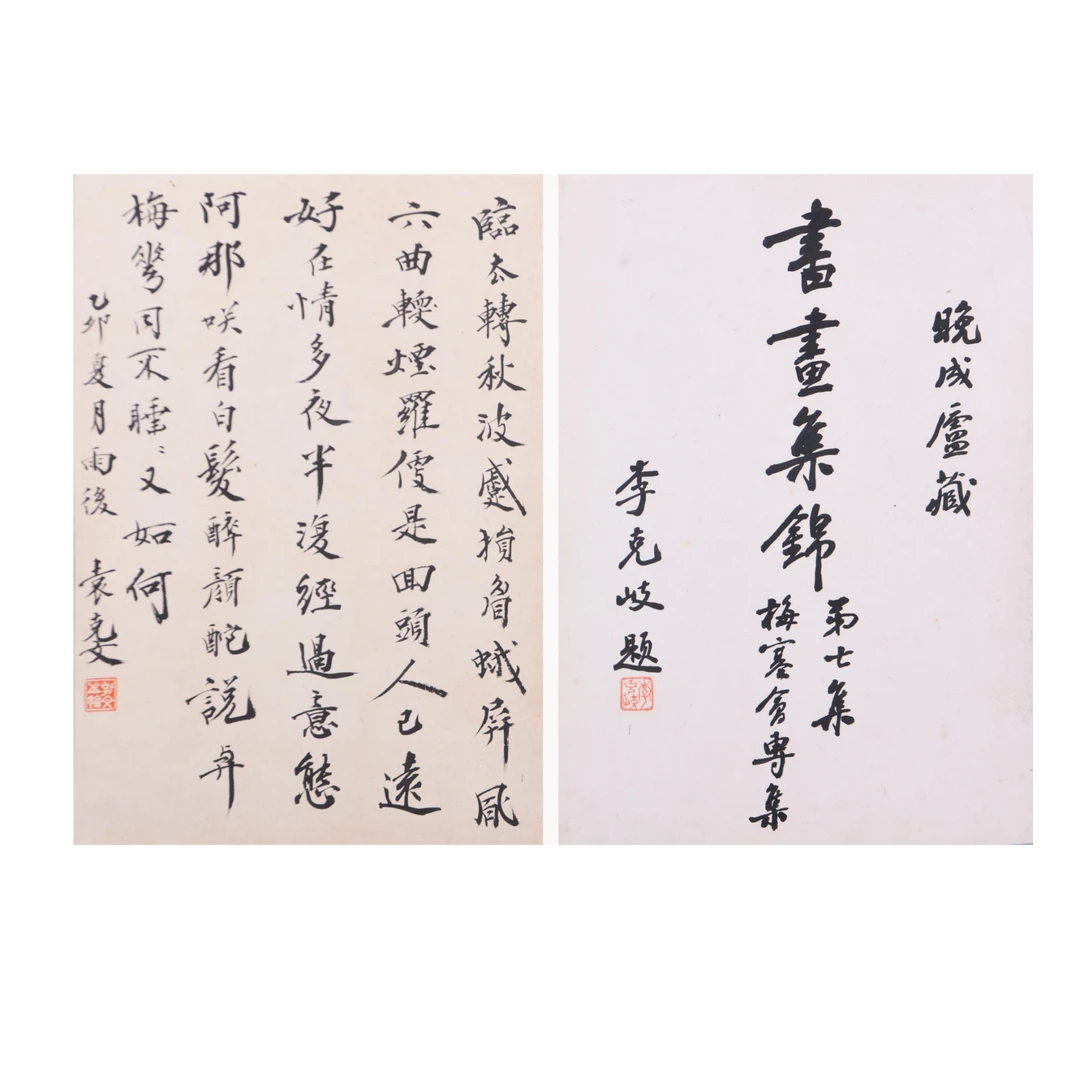 晚成廬藏
書畫集錦
第七集
梅會專集
李克岐題
臨去轉秋波蹙損眉蛾屏風
六曲輭煙羅便是回頭人已遠
好在情多夜半復經過意態
阿那咲看白髮醉顏酡說與
梅華同不睡〻又如何
乙卯夏月雨後 袁克文